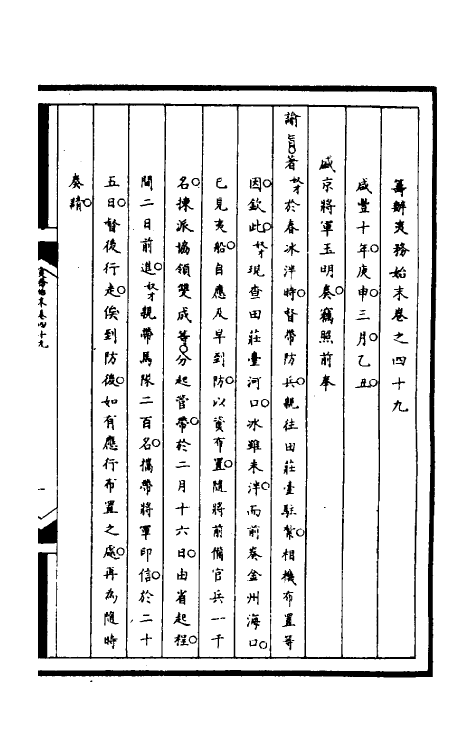 籌辦夷務始末卷之四十九
咸豐十年庚申三月乙丑○
盛京將軍玉明奏○竊照前奉
諭旨○著奴才於春冰泮時○督帶防兵○親往田莊臺駐紮○相機布置等
因○欽此○奴才現查田莊臺河口○冰雖未泮○而前奏金州海口○
已見夷船○自應及早到防○以資布置○隨將前備官兵一千
名○揀派協領雙成等○分起管帶○於二月十六日○由省起程○
間二日前進○奴才親帶馬隊二百名○攜帶將軍印信○於二十
五日○督後行走○俟到防後○如有應行布置之處○再為隨時
奏請○
夷務始末卷四十九
一